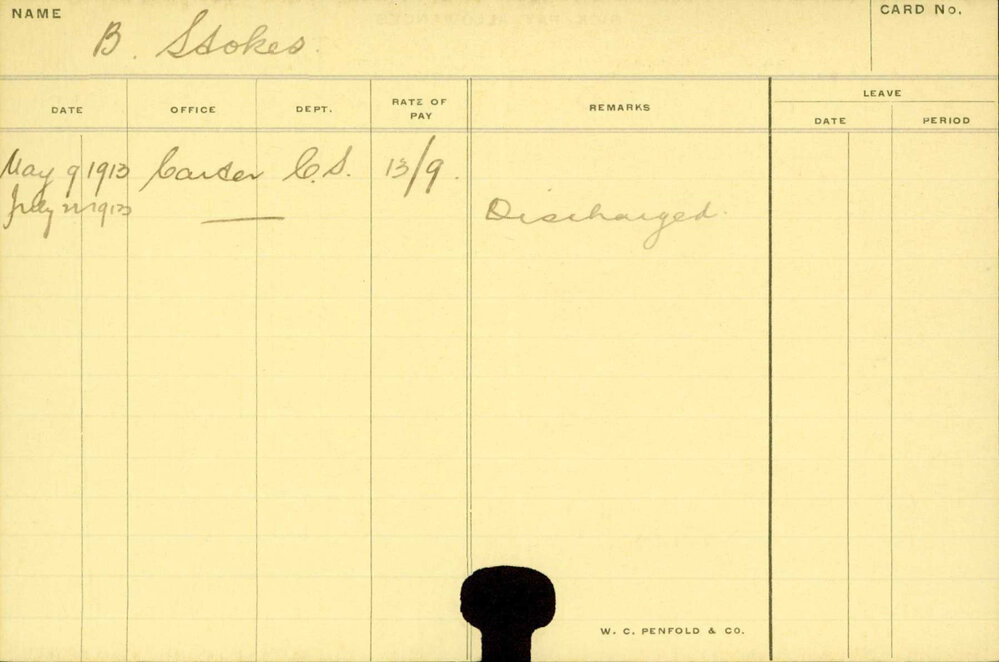 NAME B. Stokes.
CARD No.
DATE OFFICE DEPT. RATE OF PAY REMARKS LEAVE
DATE PERIOD
May 9 1913 Carter C.S. 13/9.
July 22 1913 — Discharged.
W. C. PENFOLD & CO.